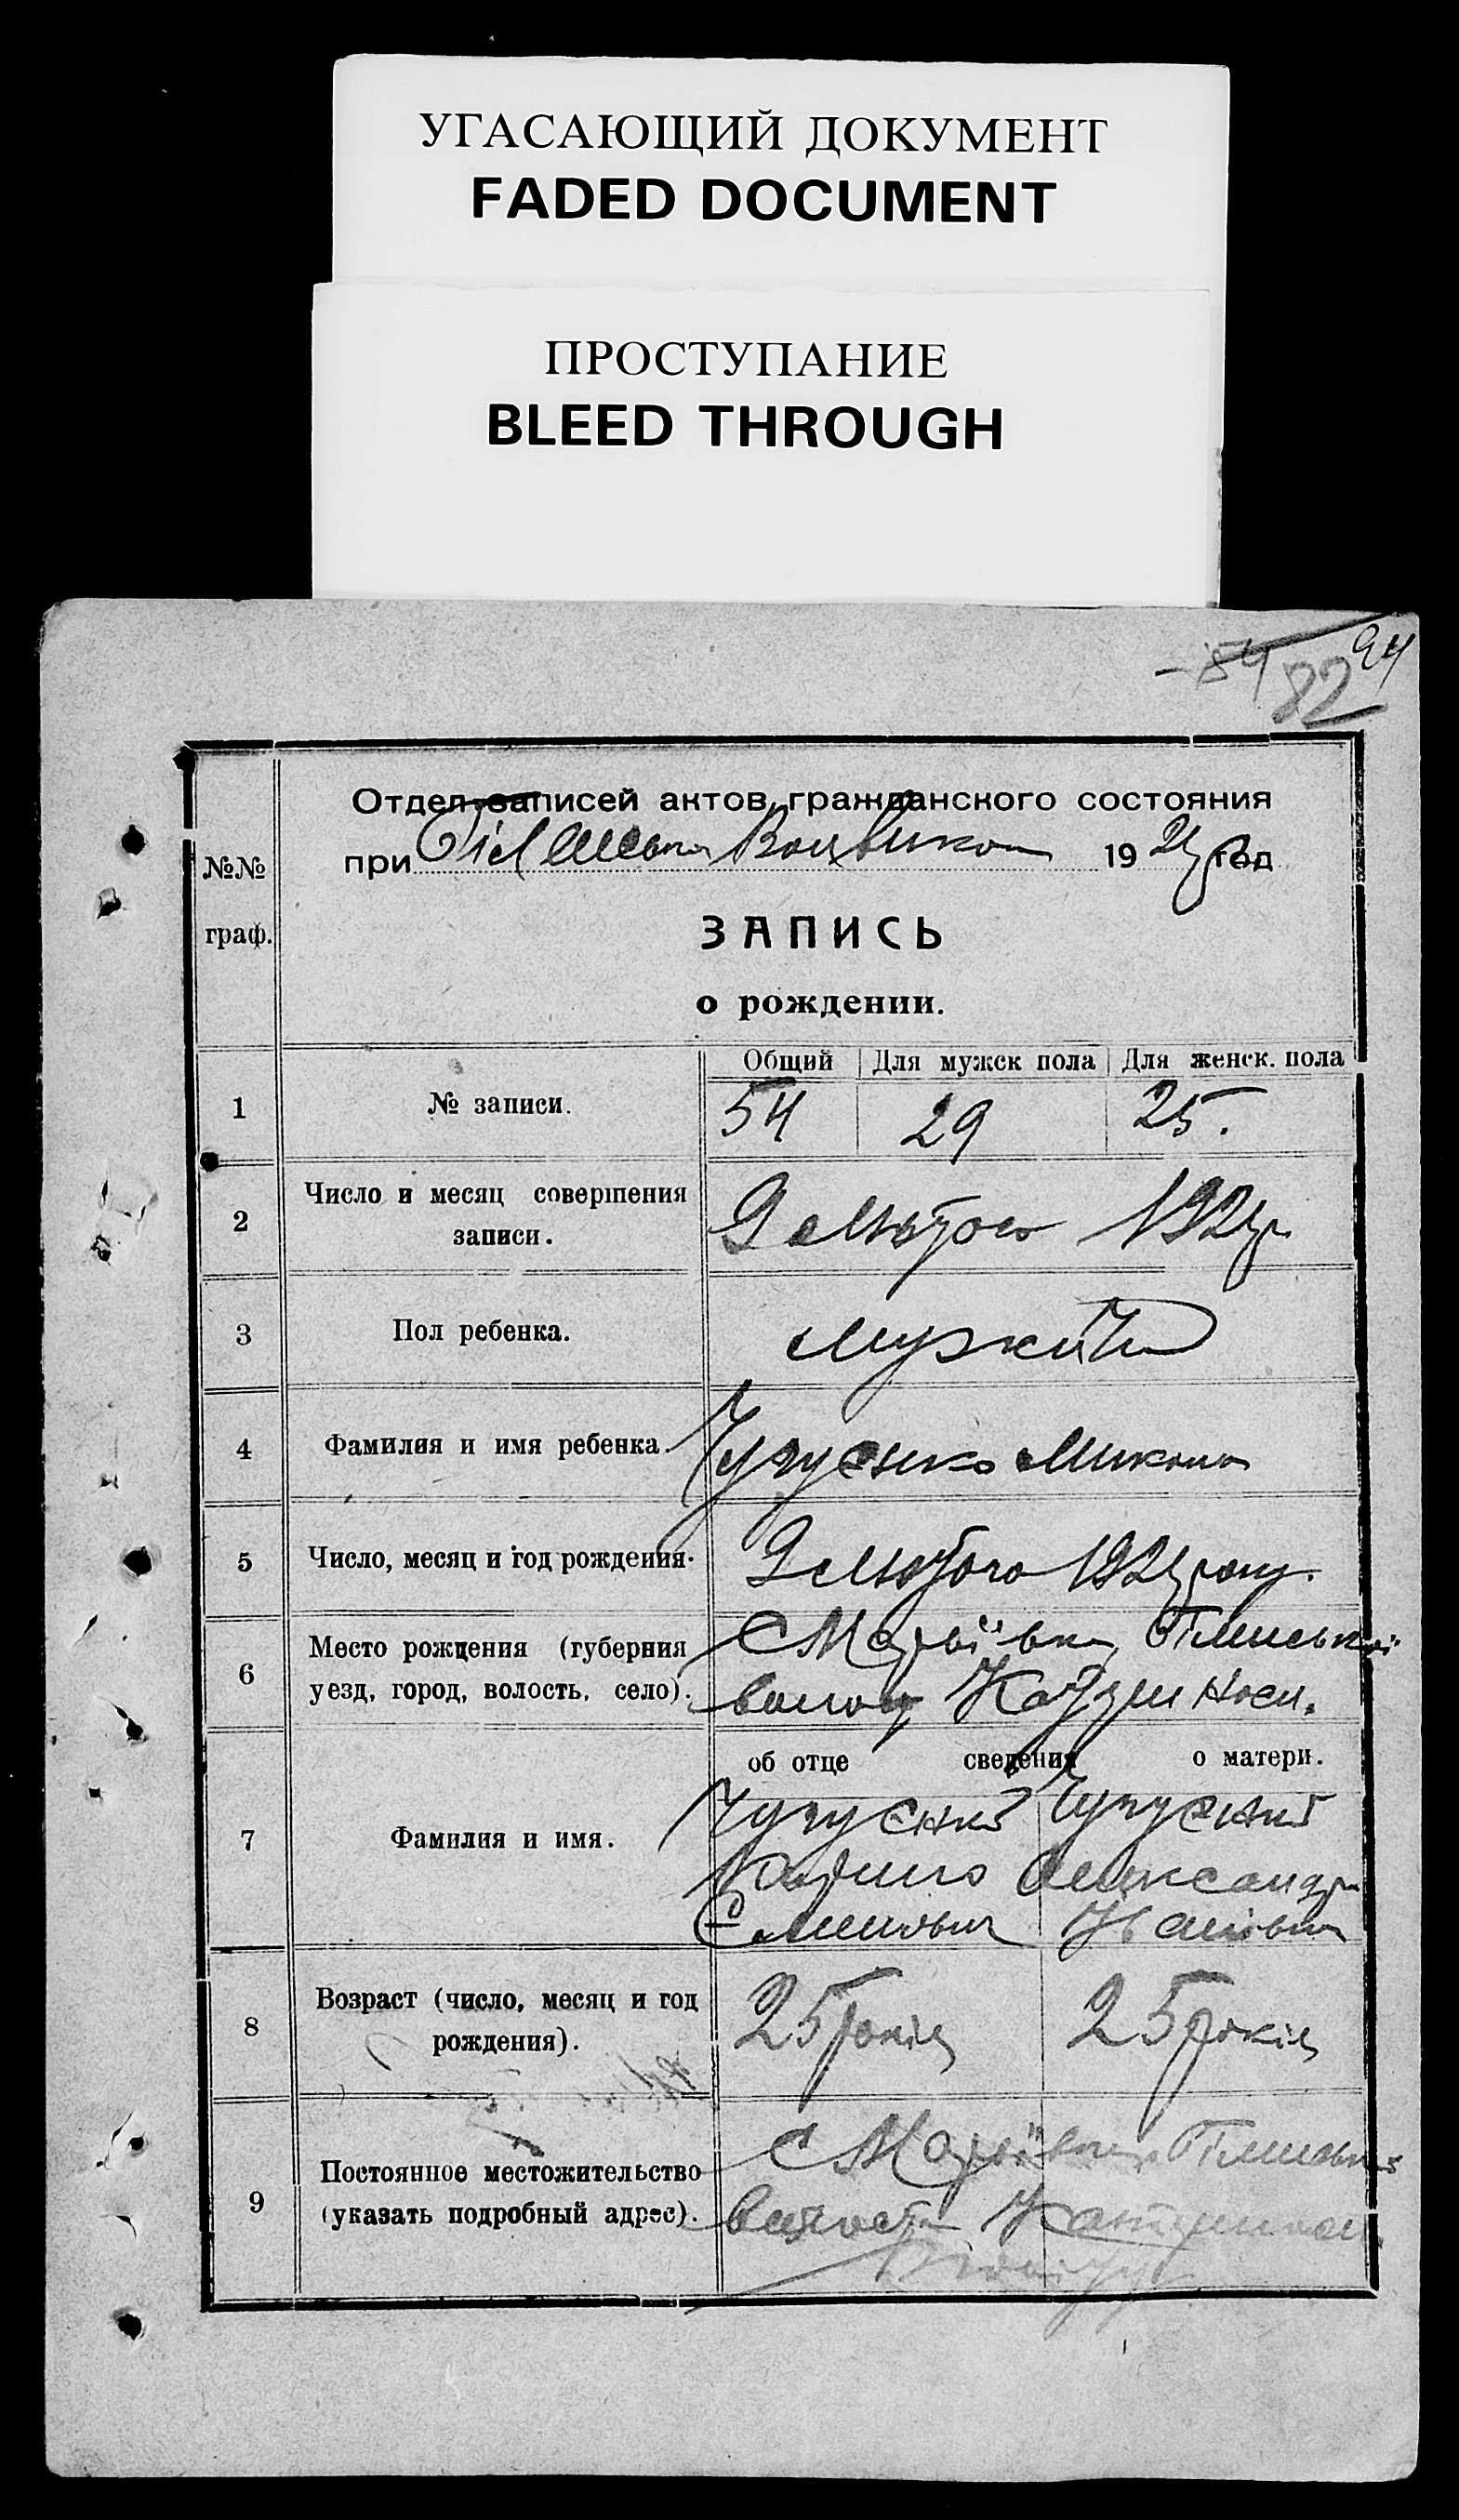 УГАСАЮЩИЙ ДОКУМЕНТ
FADED DOCUMENT
ПРОСТУПАНИЕ
BLEED THROUGH
84 82 94
Отдел записей актов гражданского состояния
при 1924 год
№№
граф.
ЗАПИСЬ
о рождении.
Общий Для мужск пола Для женск. пола
1 № записи. 54 29 25.
2 Число и месяц совершения
записи. 9 лютого 1924 р
3 Пол ребенка.
4 Фамилия и имя ребенка. Микола
5 Число, месяц и год рождения. 9 лютого 1924 року.
6 Место рождения (губерния
уезд, город, волость, село). С Мар'ївка
волос
об отце сведения о матери.
7 Фамилия и имя.
Олександра
Семенович Івановна
8 Возраст (число, месяц и год
рождения). 25 років 25 років
9 Постоянное местожительство
(указать подробный адрес). С Мар'ївка
волости